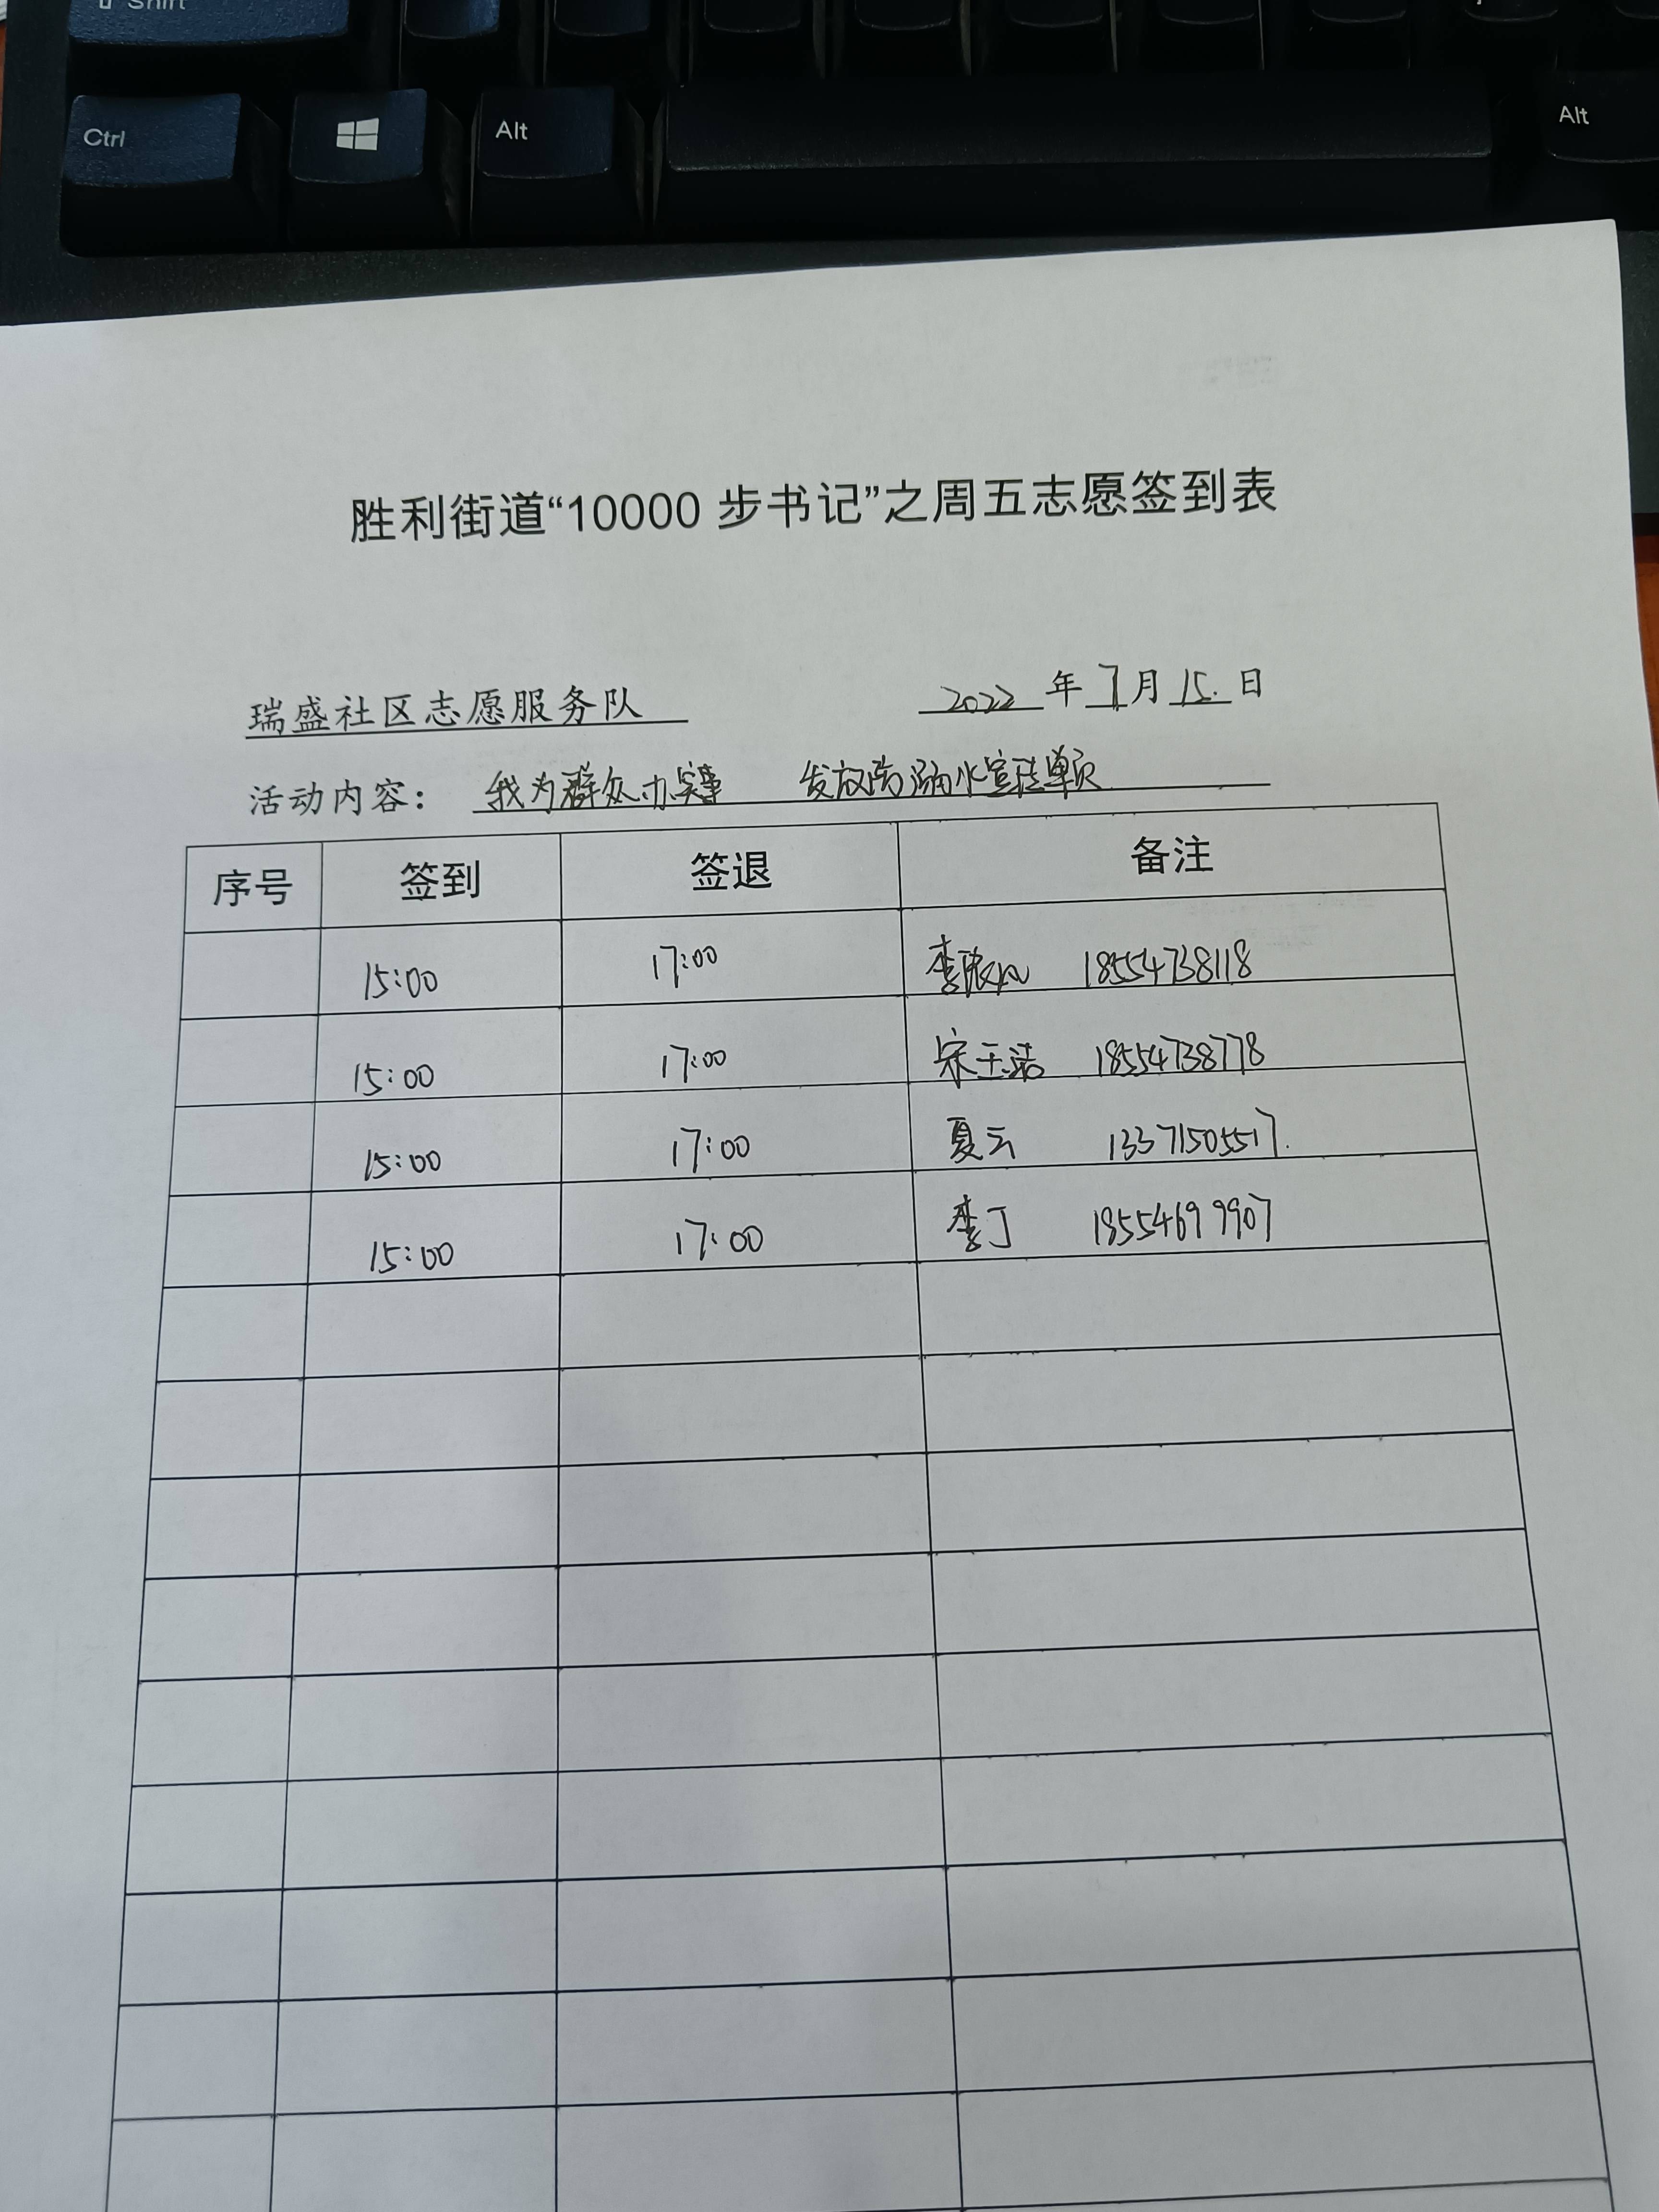 Shift
Ctrl Alt Alt
胜利街道“10000 步书记”之周五志愿签到表
瑞盛社区志愿服务队 2022 年 7 月 15. 日
活动内容： 我为群众办实事 发放防溺水宣传单页
序号 签到 签退 备注
15:00 17:00 李 18554738118
15:00 17:00 宋玉洁 18554738778
15:00 17:00 夏云 13371505517.
15:00 17:00 李丁 18554699907